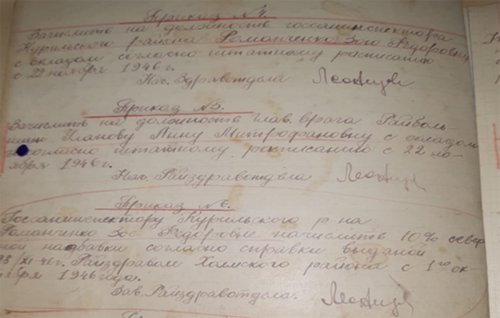 Приказ №4.
Зачислить на должность госсанинспектора
Курильского района Романченко Зою Федоровну
с окладом согласно штатному росписанию
с 22 ноября 1946 г.
Нач. Здравотдела
Приказ №5.
Зачислить на должность глав. врача Райболь
Иланову Анну Митрофановну с окладом
согласно штатному росписанию с 22 но-
ября 1946 г.
Нач. Райздравотдела
Приказ №6.
Госсанинспектору Курильского р-на
Романченко Зое Федоровне начислить 10% север
ной надбавки согласно справки выданой
Райздравом Холмского района с 1го ок
тября 1946 года.
Зав. Райздравотдела.